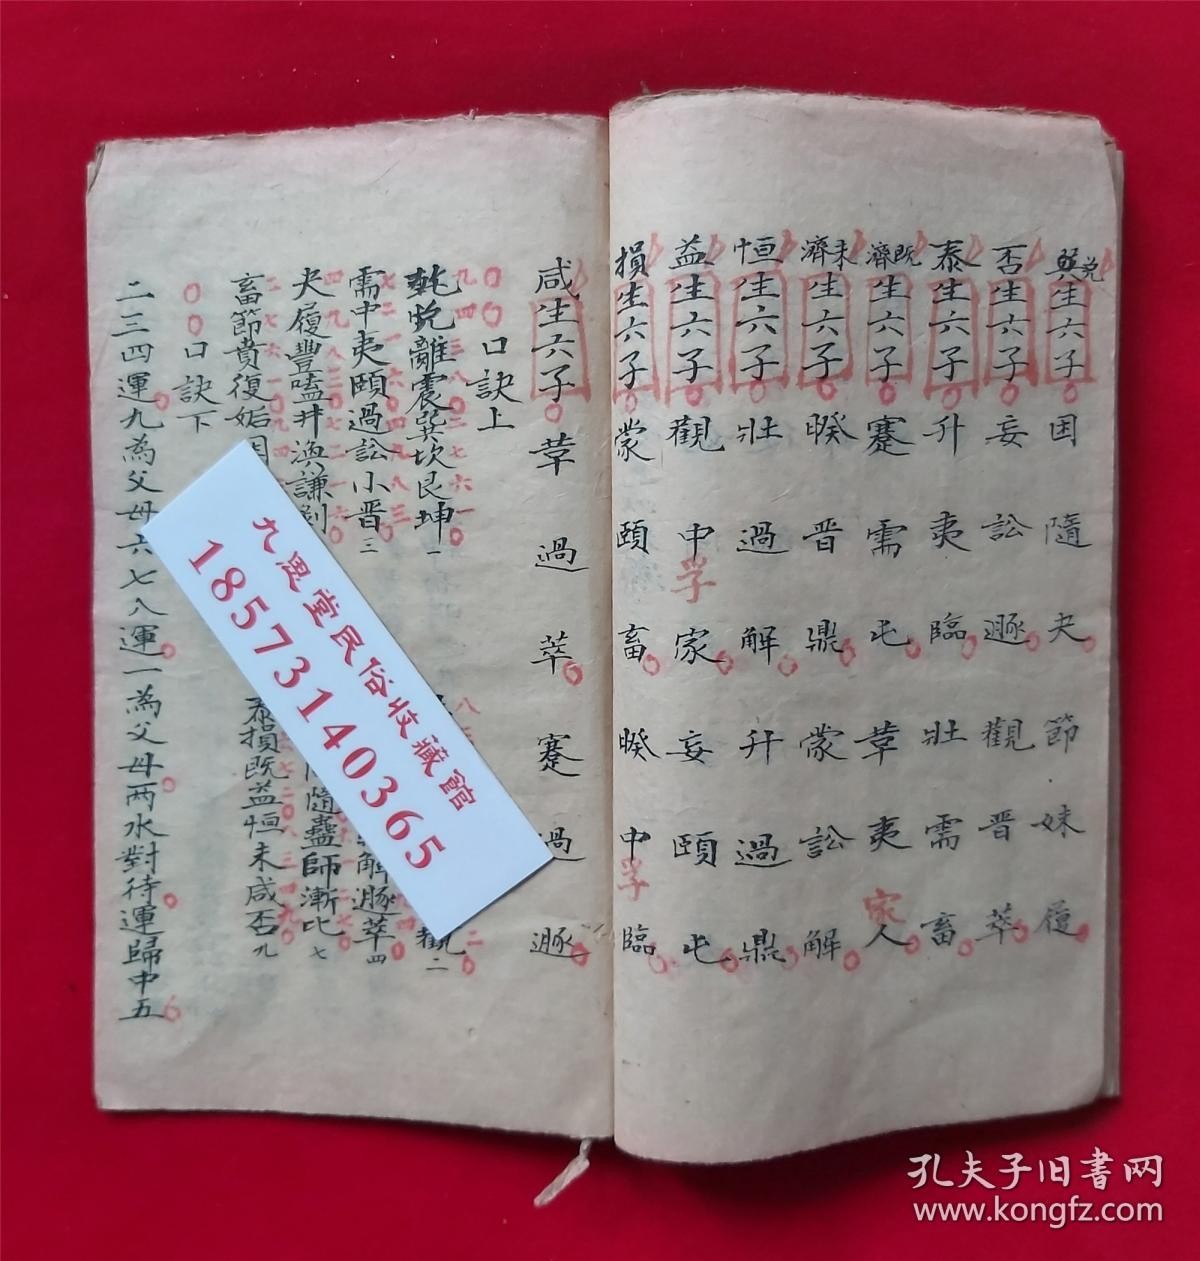 兌生六子 困 隨 夬 節 妹 履
否生六子 妄 訟 遯 觀 晋 萃
泰生六子 升 夷 臨 壯 需 畜
既濟生六子 蹇 需 屯 革 夷 家人
未濟生六子 睽 晋 鼎 蒙 訟 解
恒生六子 壯 過 解 升 過 鼎
益生六子 觀 中孚 家 妄 頤 屯
損生六子 蒙 頤 畜 睽 中孚 臨
咸生六子 革 過 萃 蹇 過 遯
口訣上
乾兌離震巽坎艮坤一
九四三八二七六一
觀二
需中夷頤過訟小晋三
解遯萃四
夬履豐嗑井渙謙剝
隨蠱師漸比七
畜節賁復姤困
泰損既益恒未咸否九
口訣下
二三四運九為父母六七八運一為父母两水對待運歸中五
九思堂民俗收藏館
18573140365
孔夫子旧書网
www.kongfz.com